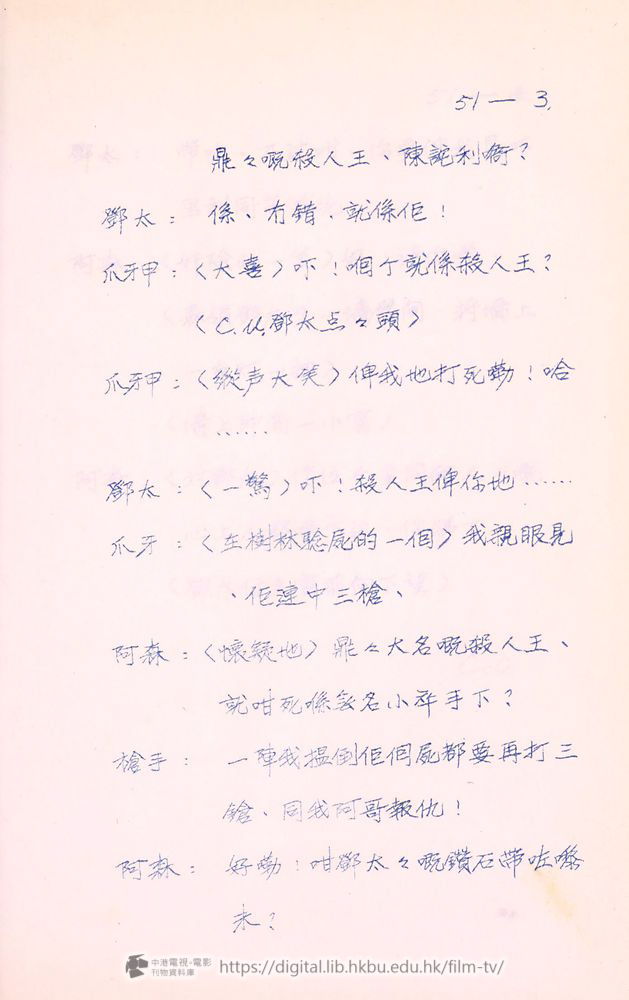 51 — 3.
鼎々嘅殺人王、陳詑利衛?
鄧太:係、冇錯、就係佢!
爪牙甲:(大喜)吓!嗰个就係殺人王?
(C.U.鄧太点々頭)
爪牙甲:(縱声大笑)俾我地打死嘞!哈
……
鄧太:(一驚)吓!殺人王俾你地……
爪牙:(在樹林驗屍的一個)我親眼見
、佢連中三槍、
阿森:(懷疑地)鼎々大名嘅殺人王、
就咁死喺無名小卒手下?
槍手:一陣我搵倒佢個屍都要再打三
鎗、同我阿哥報仇!
阿森:好嘞!咁鄧太々嘅鑽石帶咗嚟
未?
中港電視·電影
刊物資料庫
https://digital.lib.hkbu.edu.hk/film-tv/